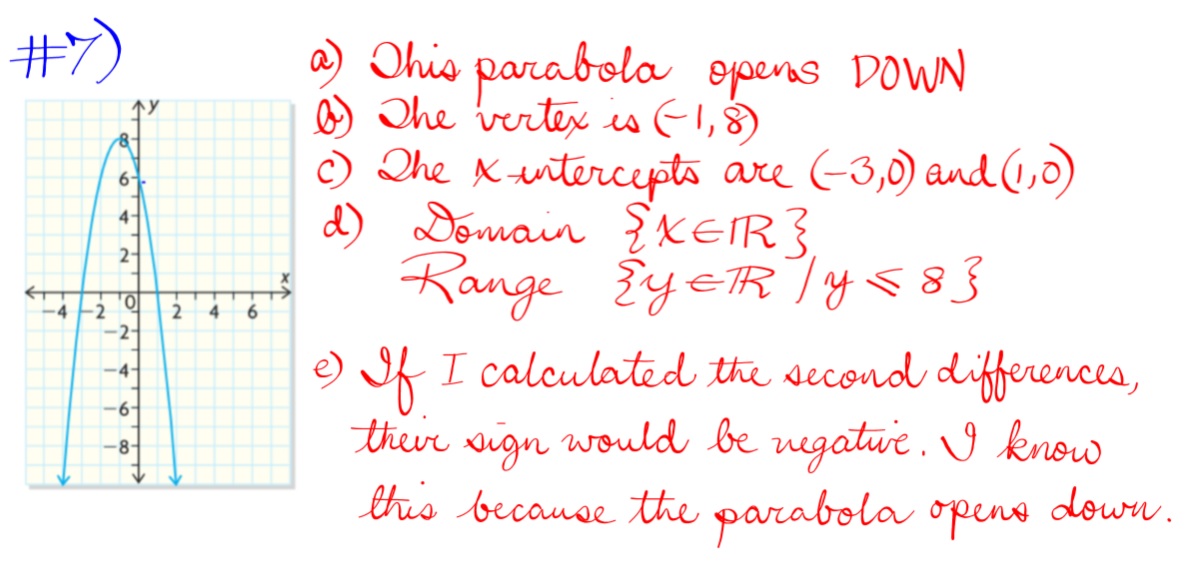 #7)
a) This parabola opens DOWN
b) The vertex is (-1,8)
c) The x-intercepts are (-3,0) and (1,0)
d) Domain {x∈ℝ}
Range {y∈ℝ / y ≤ 8}
e) If I calculated the second differences,
their sign would be negative. I know
this because the parabola opens down.
y
8
6
4
2
x
-4 -2 0 2 4 6
-2
-4
-6
-8